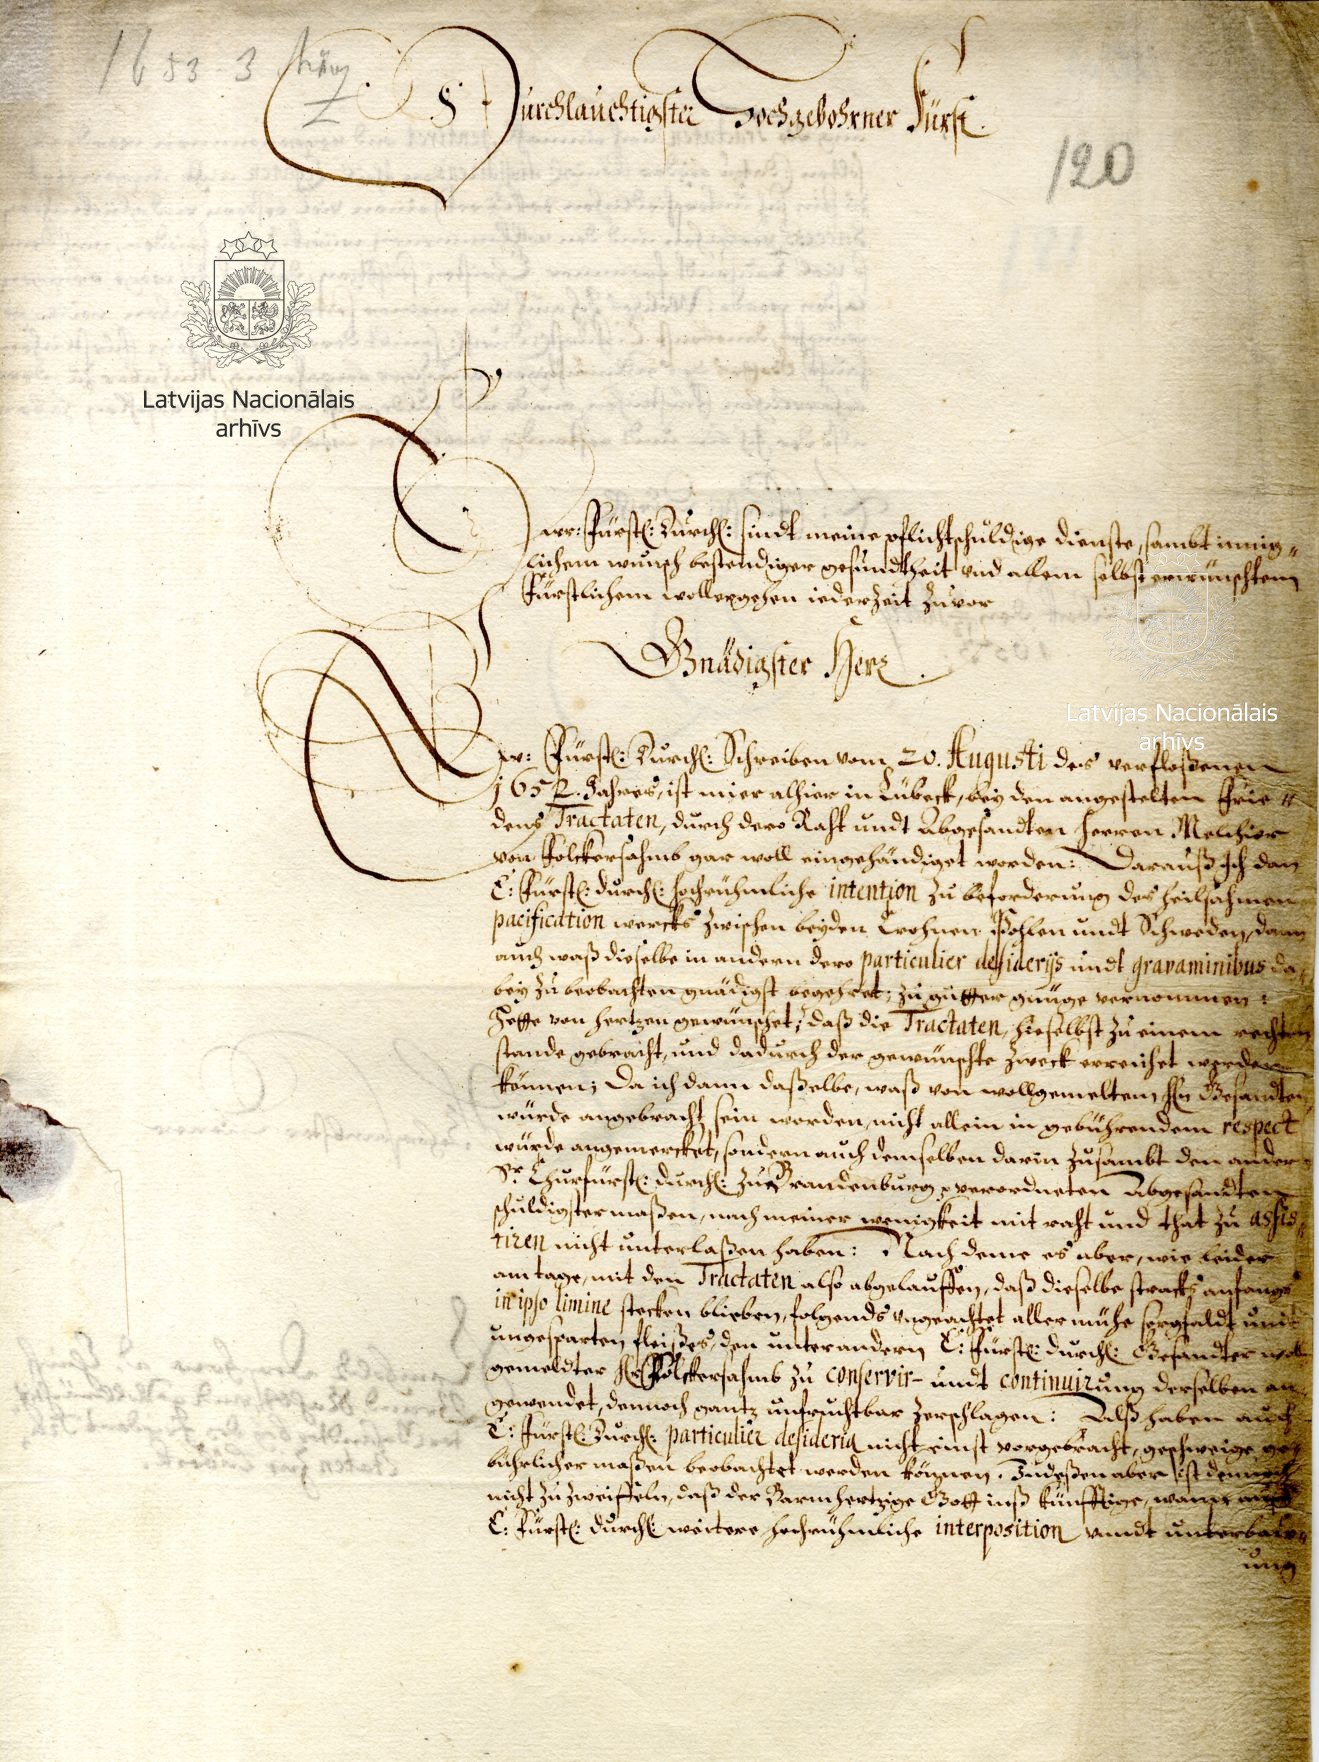 1653 3 März
Durchlauchtigster Hochgebohrner Fürst.
120
Latvijas Nacionālais
arhīvs
Ewr: Fürstl: Durchl: sindt meine pflichtschuldige dienste, sambt innig„
lichem wunsch bestendiger gesundtheit und allem selbst erwünschtem
Fürstlichem wollergehen iederzeit zuvor
Gnädigster Herr.
Latvijas Nacionālais
arhīvs
Ew: Fürstl: Durchl: Schreiben vom 20. Augusti des verfloßenen
1652. Jahres, ist mier alhier in Lübeck, bey den angestelten Frie„
dens Tractaten, durch dero Raht undt Abgesandten Herren Melchior
von Fölckersahmb gar woll eingehändiget worden: Darauß Ich dan
E: Fürstl: durchl: hochrühmliche intention zu beforderung des heilsahmen
pacification wercks zwischen beyden Crohnen Pohlen undt Schweden, dann
auch waß dieselbe in andern dero particulier desiderijs undt gravaminibus da„
bey zu beobachten gnädigst begehret; zu gutter gnüge vernommen:
Hette von hertzen gewünschet, daß die Tractaten, hieselbst zu einem rechten
stande gebracht, und dadurch der gewünschte zweck erreichet werden
können; Da ich dann daßelbe, waß von wollgemeltem Hn Gesandten
würde angebracht sein worden, nicht allein in gebührendem respect
würde angemercket, sondern auch demselben darin zusambt den andern
Sr. Churfürstl: durchl: zu Brandenburg verordneten Abgesandten
schuldigster maßen, nach meiner wenigkeit mit raht und that zu assis„
tiren nicht unterlaßen haben: Nach deme es aber, wie leider
am tage, mit den Tractaten also abgelauffen, daß dieselbe stracks anfangs
in ipso limine stecken blieben, folgends ungeachtet aller mühe sorgfaldt undt
ungesparten fleißes, den unter andern E: Fürstl: durchl: Gesandter woll
gemeldter Hr Fölckersahmb zu conservir- undt continuirung derselben an„
gewendet, dennoch gantz unfruchtbar zerschlagen: Alß haben auch
E: Fürstl: Durchl: particulier desideria nicht einst vorgebracht, geschweige ge„
bührlicher maßen beobachtet werden können. Indeßen aber ist dennoch
nicht zu zweiffeln, daß der Barmhertzige Gott inß künfftige, wann
E: Fürstl: durchl: weitere hochrühmliche interposition unndt unterbau„
ung